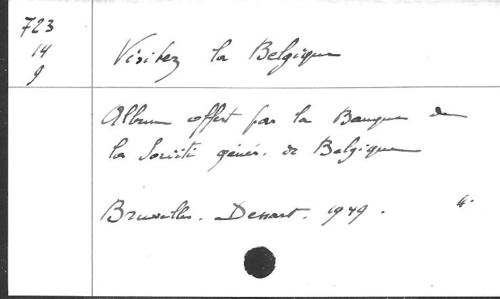 723
14
9
Visitez la Belgique
Album offert par la Banque de
la Société génér. de Belgique
Bruxelles. Dessart. 1949.